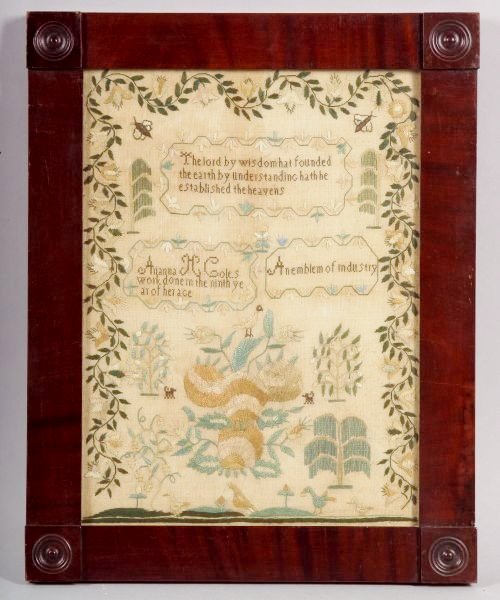 The lord by wisdom hat founded
the earth by understanding hath he
established the heavens
Ananna H Coles
work done in the ninth ye
ar of her age
An emblem of industry